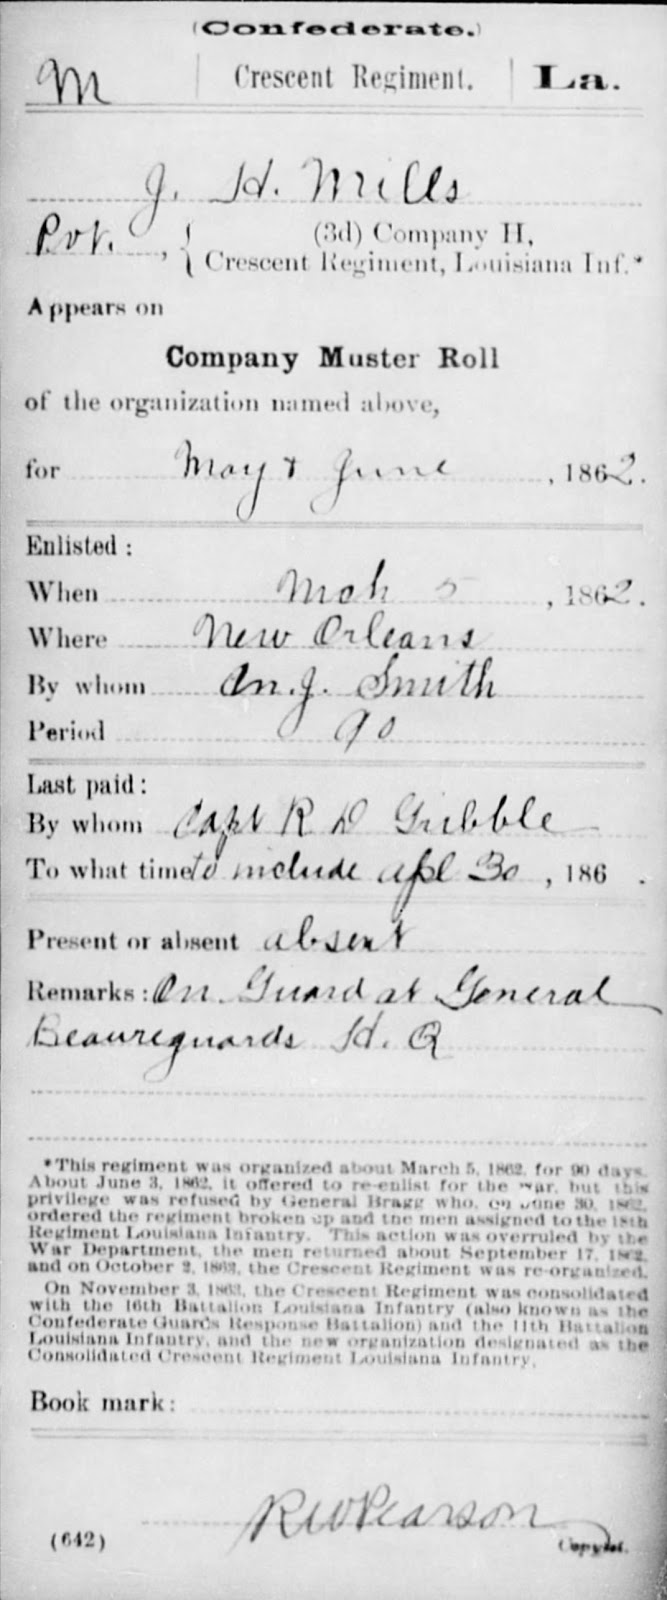 (Confederate.)
M | Crescent Regiment. | La.
J. H. Mills
Pvt., { (3d) Company H,
Crescent Regiment, Louisiana Inf.*
Appears on
Company Muster Roll
of the organization named above,
for May & June, 1862.
Enlisted:
When Mch 5, 1862.
Where New Orleans
By whom M. J. Smith
Period 90
Last paid:
By whom Capt R D Gribble
To what time to include Apl 30, 186 .
Present or absent absent
Remarks: On Guard at General
Beaureguards H. Q
*This regiment was organized about March 5, 1862, for 90 days.
About June 3, 1862, it offered to re-enlist for the war, but this
privilege was refused by General Bragg who, on June 30, 1862,
ordered the regiment broken up and the men assigned to the 18th
Regiment Louisiana Infantry. This action was overruled by the
War Department, the men returned about September 17, 1862,
and on October 2, 1862, the Crescent Regiment was re-organized.
On November 3, 1863, the Crescent Regiment was consolidated
with the 16th Battalion Louisiana Infantry (also known as the
Confederate Guards Response Battalion) and the 11th Battalion
Louisiana Infantry, and the new organization designated as the
Consolidated Crescent Regiment Louisiana Infantry.
Book mark:
R W Pearson
(642) Copyist.